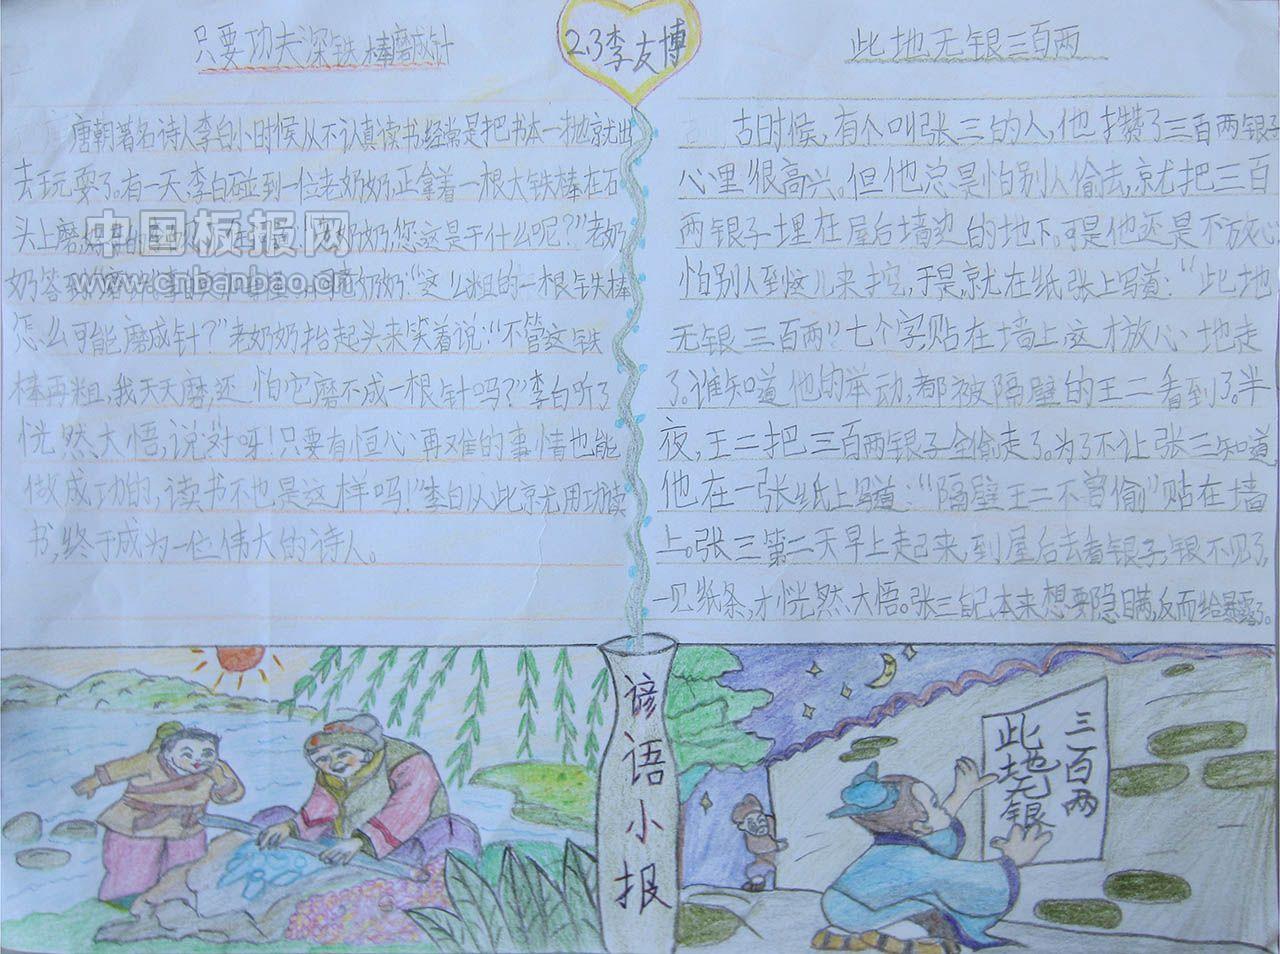 只要功夫深铁棒磨成针
2.3李友博
此地无银三百两
唐朝著名诗人李白小时候从不认真读书经常是把书本一抛就出
去玩耍了。有一天李白碰到一位老奶奶,正拿着一根大铁棒在石
头上磨 奶奶,您这是干什么呢?"老奶
奶答 奶奶:"这么粗的一根铁棒
怎么可能磨成针?"老奶奶抬起头来笑着说:"不管这铁
棒再粗,我天天磨,还怕它磨不成一根针吗?"李白听了
恍然大悟,说:"对呀!只要有恒心再难的事情也能
做成功的,读书不也是这样吗!"李白从此就用功读
书,终于成为一位伟大的诗人。
古时候,有个叫张三的人,他攒了三百两银子
心里很高兴。但他总是怕别人偷去,就把三百
两银子埋在屋后墙边的地下。可是他还是不放心
怕别人到这儿来挖,于是,就在纸张上写道:"此地
无银三百两"七个字,贴在墙上,这才放心地走
了。谁知道他的举动,都被隔壁的王二看到了。半
夜,王二把三百两银子全偷走了。为了不让张三知道,
他在一张纸上写道:"隔壁王二不曾偷"贴在墙
上。张三第二天早上起来,到屋后去看银子,银不见了,
一见纸条,才恍然大悟。张三自己本来想要隐瞒,反而给暴露了。
谚语小报
此地无银
三百两
中国板报网
www.cnbanbao.cn